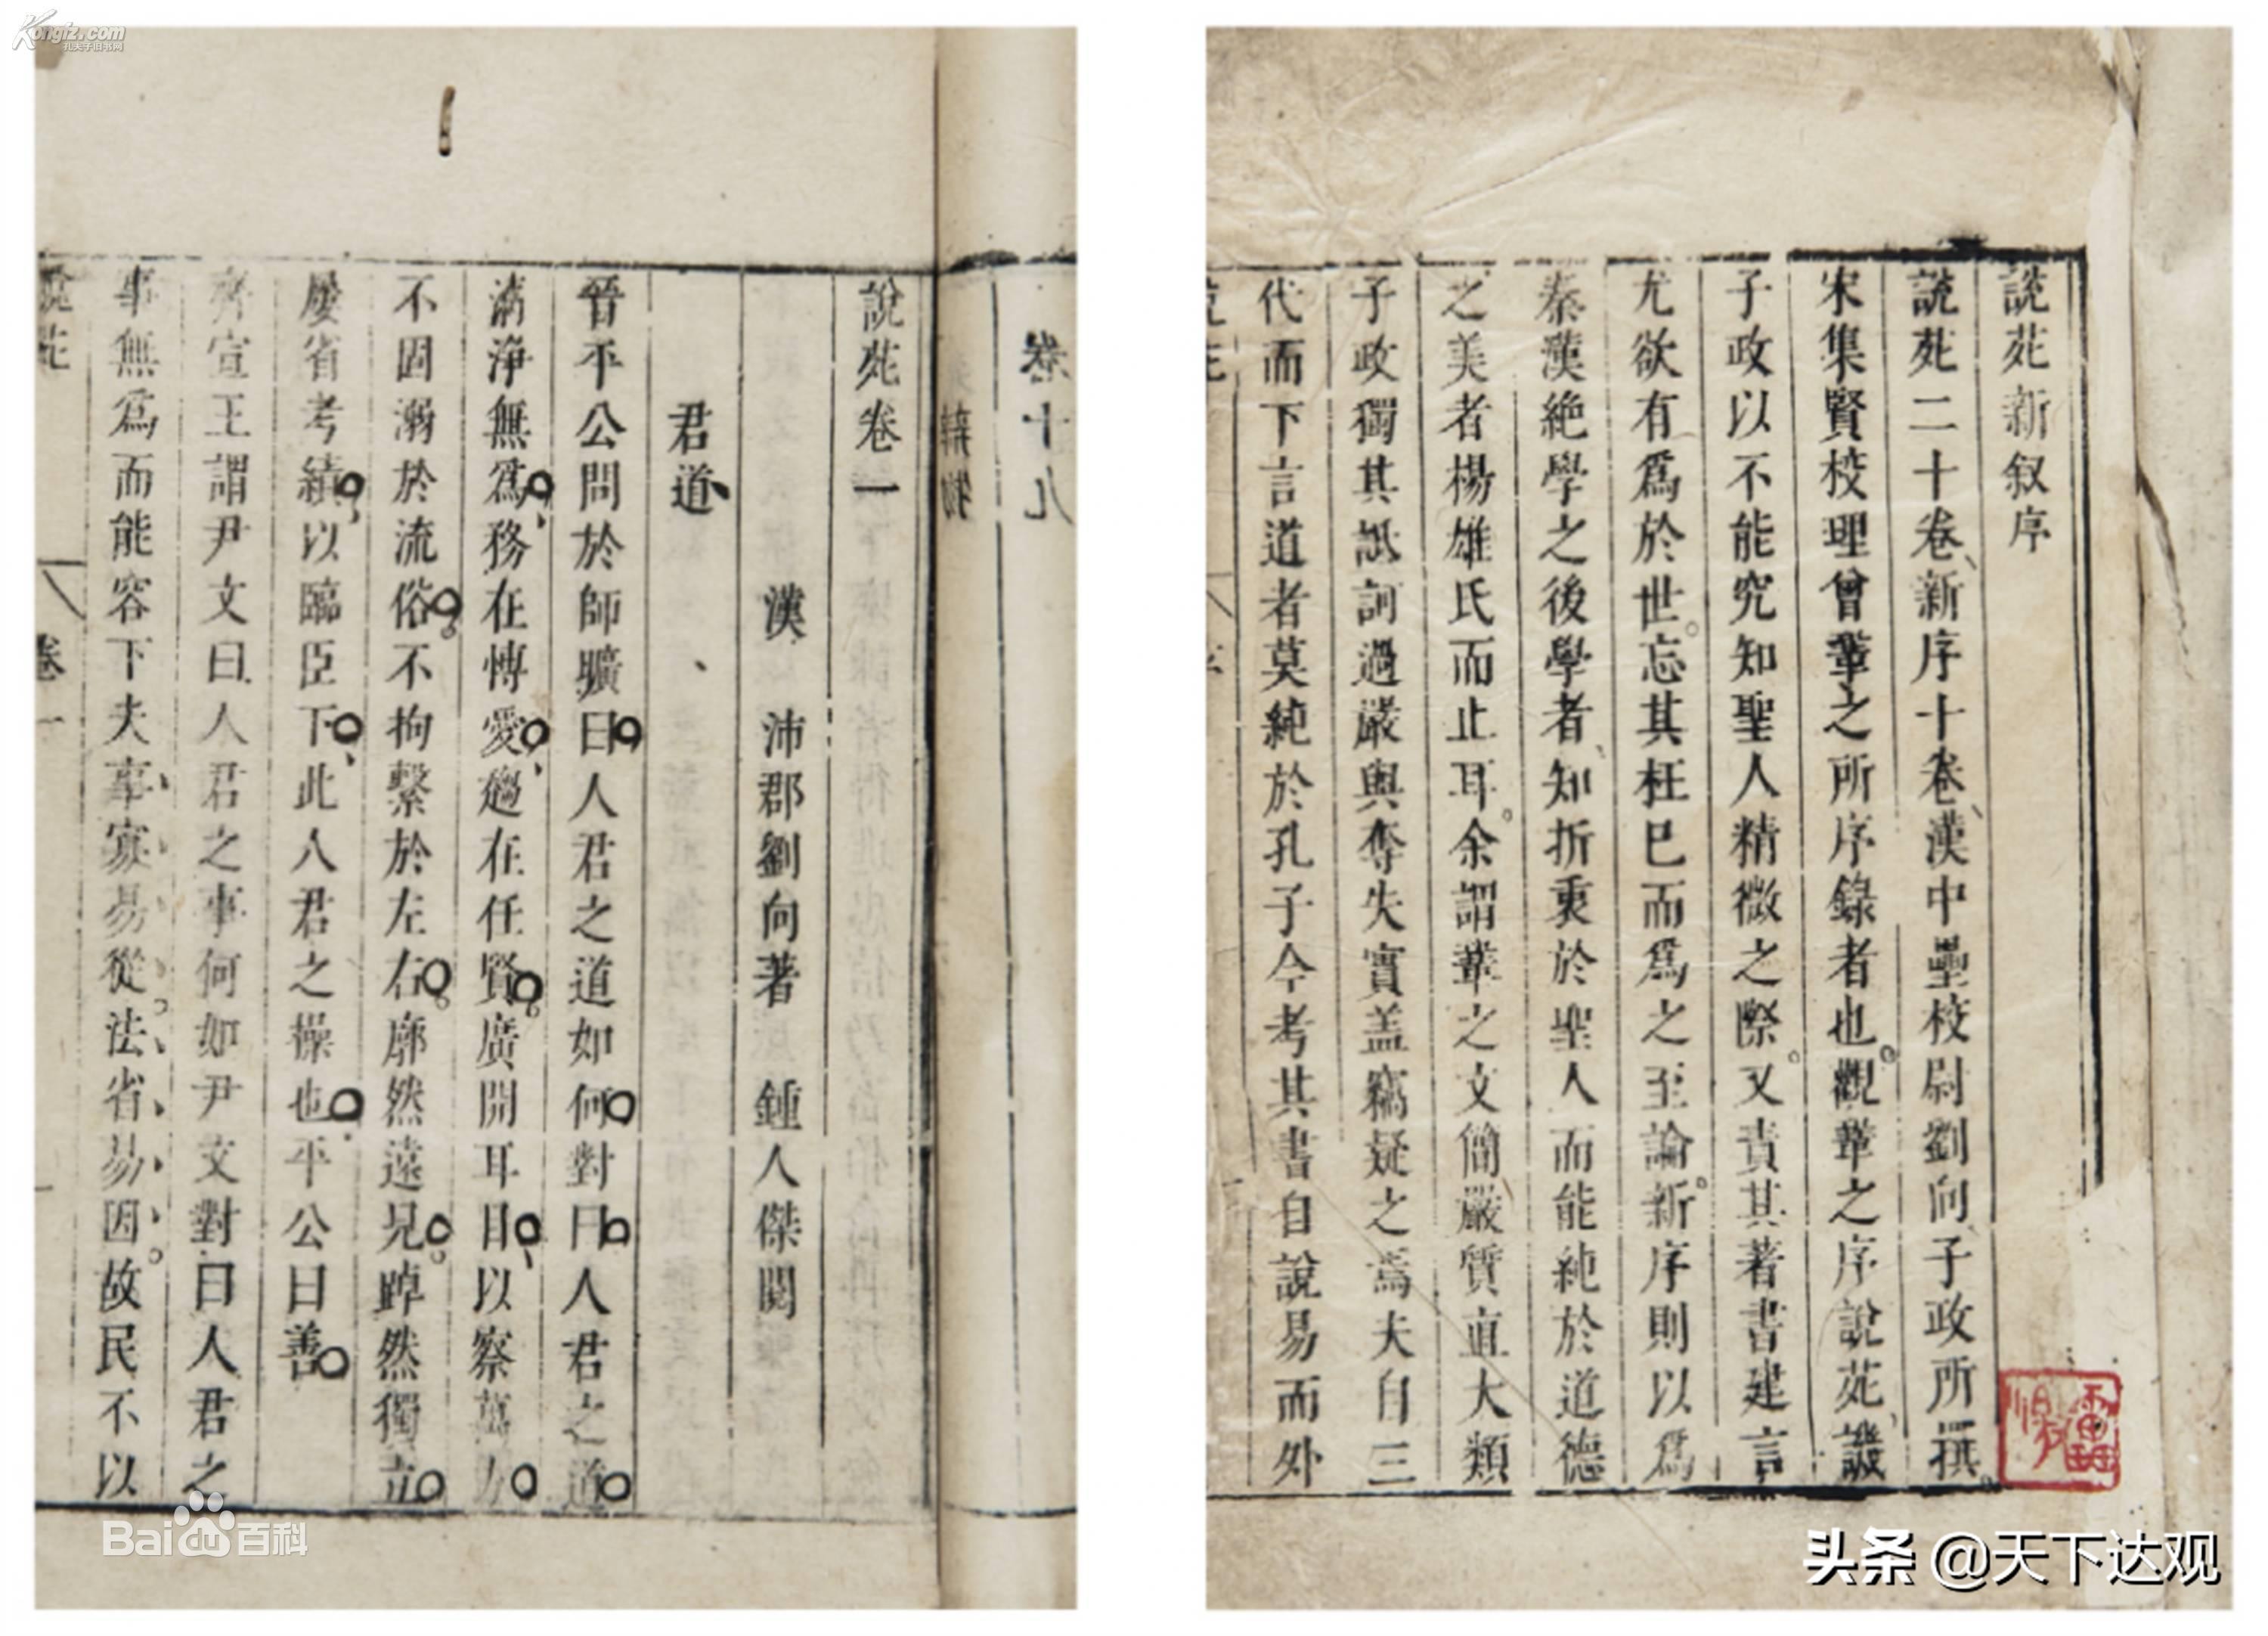 說苑新叙序
說苑二十卷、新序十卷、漢中壘校尉劉向、子政所撰。
宋集賢校理曾鞏之所序錄者也。觀鞏之序說苑、譏
子政以不能究知聖人精微之際。又責其著書建言
尤欲有爲於世。忘其枉巳而爲之至論。新序則以爲
秦漢絶學之後學者、知折衷於聖人而能純於道德
之美者楊雄氏而止耳。余謂鞏之文簡嚴質直大類
子政獨其詆訶過嚴與奪失實盖竊疑之焉夫自三
代而下言道者莫純於孔子今考其書自說易而外
頭条 @天下达观
卷十九
辨物
說苑卷一
漢 沛郡劉向著 鍾人傑閱
君道
晉平公問於師曠曰人君之道如何對曰人君之道
清淨無爲、務在愽愛、趨在任賢。廣開耳目、以察萬方
不固溺於流俗。不拘繫於左右。廓然遠見。踔然獨立
屢省考績、以臨臣下、此人君之操也。平公曰善
齊宣王謂尹文曰人君之事何如尹文對曰人君之
事無爲而能容下夫事寡易從。法省易因。故民不以
說苑
卷一
Kongfz.com
孔夫子旧书网
Bai百科